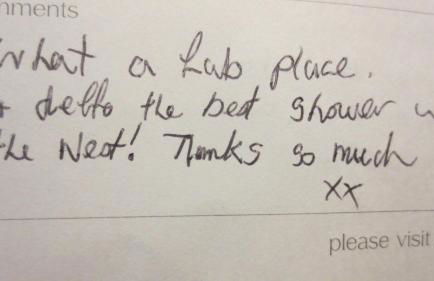 mments
What a Fab place.
+ deffo the best shower
the Nest! Thanks so much
xx
please visit